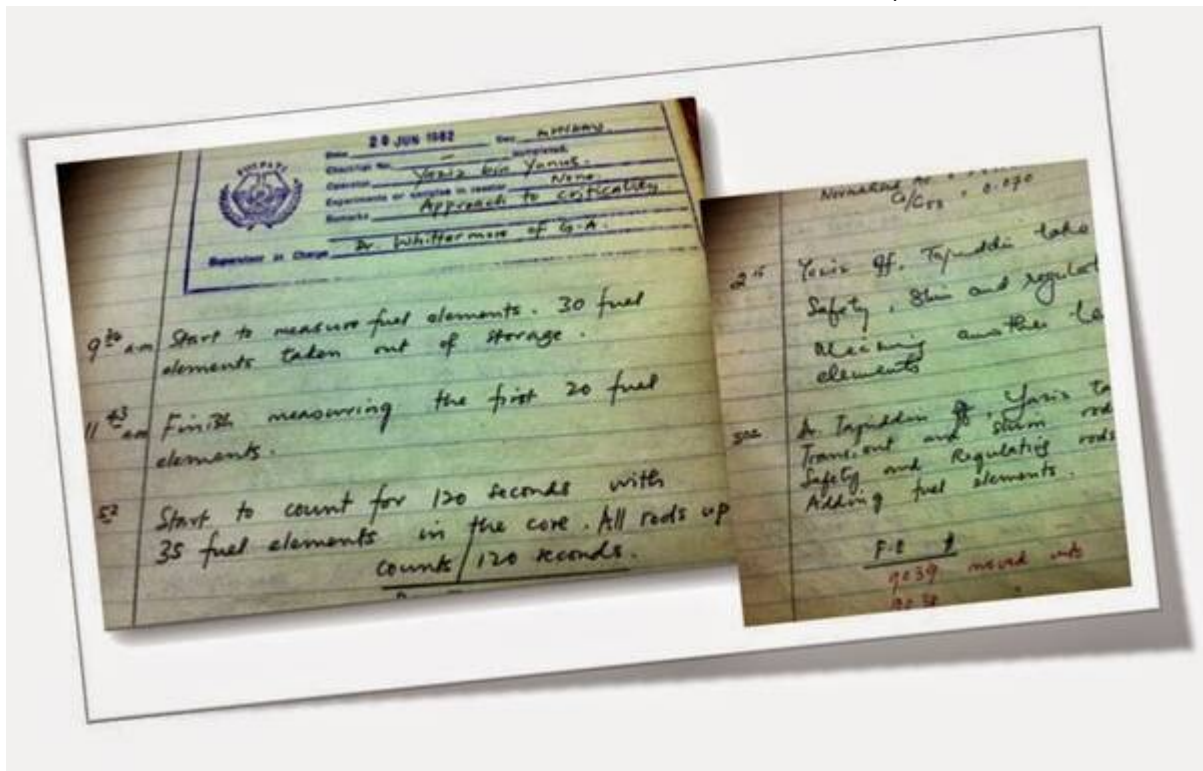 PUSPATI
Date 28 JUN 1982 Day MONDAY
Checklist No. — completed.
Operator Yaziz bin Yunus.
Experiments or samples in reactor None.
Remarks Approach to criticality
Supervisor in Charge Dr. Whittermore of G.A.
9 30 am Start to measure fuel elements. 30 fuel
elements taken out of storage.
11 43 am Finish measuring the first 20 fuel
elements.
52 Start to count for 120 seconds with
35 fuel elements in the core. All rods up
counts/120 seconds.
Normalised
0.070
2 15 Yaziz Tajuddin take
Safety, Shim and regulat
another te
elements
5 02 A. Tajuddin
Transient and Shim rod
Safety and Regulating rods
Adding fuel elements.
F.E #
9039 moved into